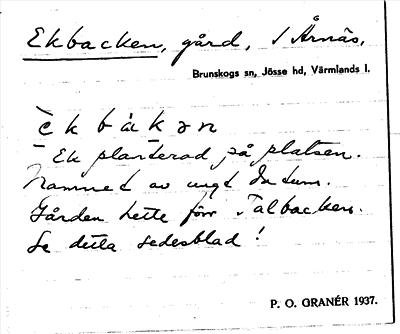 Ekbacken, gård, 1 Årnäs,
Brunskogs sn, Jösse hd, Värmlands l.
è k b à k ə n
Ek planterad på platsen.
Namnet av ungt datum.
Gården hette förr Talbacken.
Se detta sedesblad!
P. O. GRANÉR 1937.